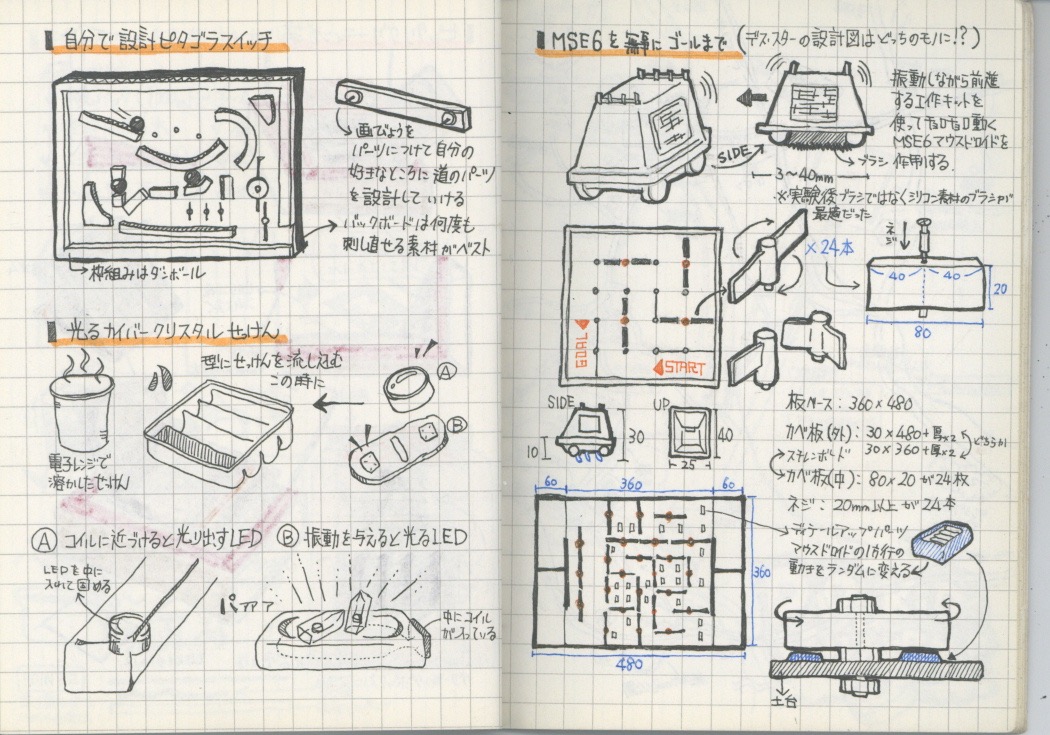 自分で設計ピタゴラスイッチ
画びょうを
パーツにつけて自分の
好きなところに道のパーツ
を設計していける
バックボードは何度も
刺し直せる素材がベスト
枠組みはダンボール
光るカイバークリスタルせっけん
型にせっけんを流し込む
この時に
A
B
電子レンジで
溶かしたせっけん
A コイルに近づけると光り出すLED
B 振動を与えると光るLED
LEDを中に
入れて固める
パァァァ
中にコイル
が入っている
MSE6を無事にゴールまで(デス・スターの設計図はどっちのモノに!?)
振動しながら前進
する工作キットを
使って
動く
MSE6マウスドロイドを
作用する.
SIDE
ブラシ
3〜40mm
※実験後ブラシではなくシリコン素材のブラシが
最適だった
×24本
ネジ
40
40
20
80
GOAL
START
SIDE
10
30
UP
40
25
板ベース: 360×480
カベ板(外): 30×480+厚×2
30×360+厚×2
どちらか
スチレンボード
カベ板(中): 80×20が24枚
ネジ: 20mm以上が24本
60
360
60
360
480
ディテールアップパーツ
マウスドロイドの
動きをランダムに変える
土台